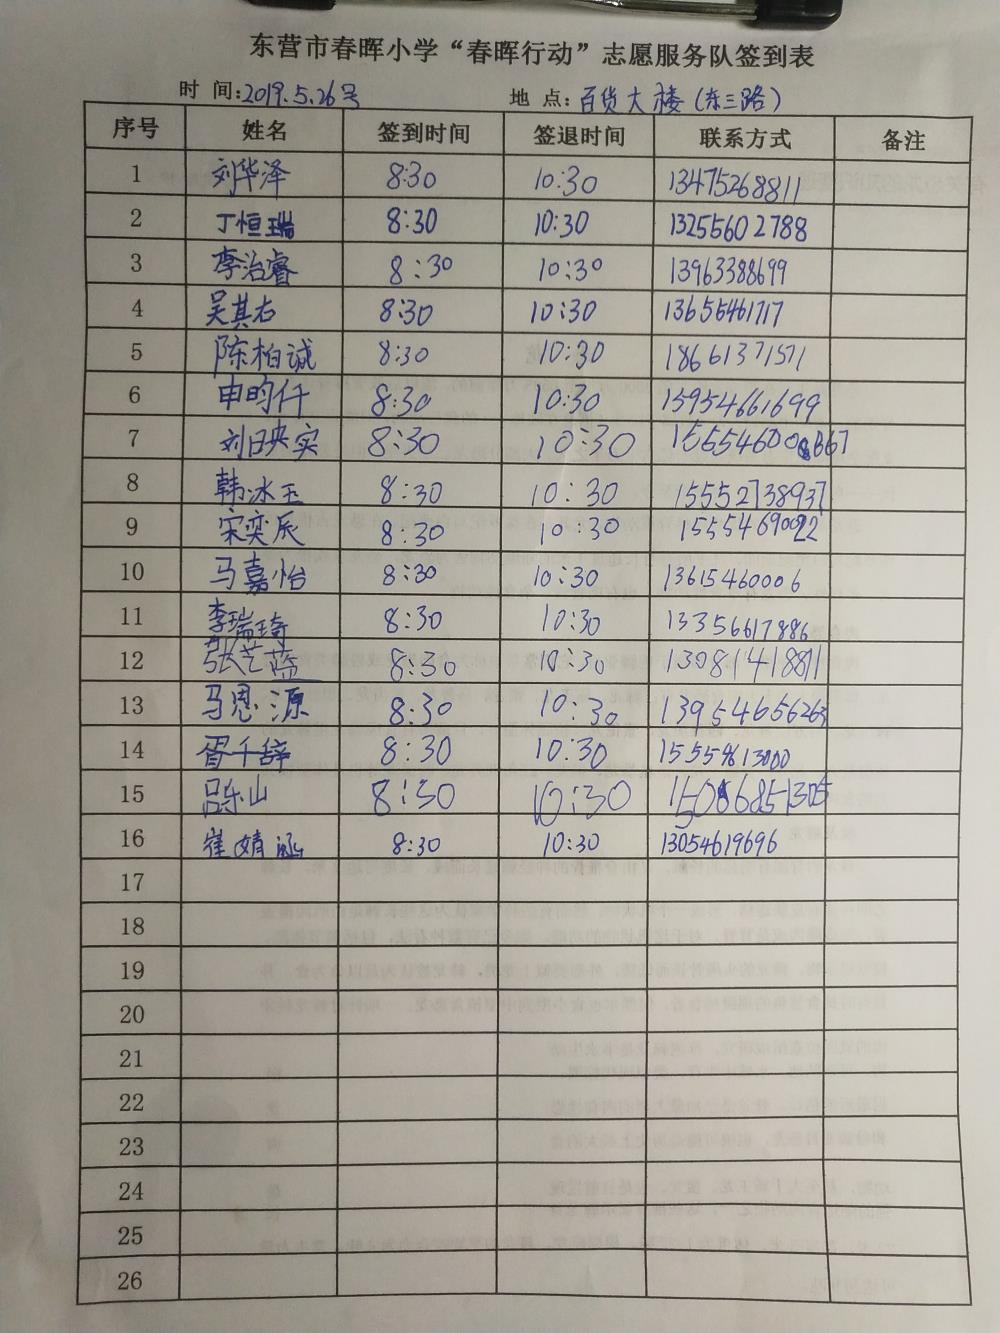 东营市春晖小学“春晖行动”志愿服务队签到表
时 间:2019.5.26号 地 点:百货大楼(东三路)
序号 姓名 签到时间 签退时间 联系方式 备注
1 刘华泽 8:30 10:30 13475268811
2 丁恒瑞 8:30 10:30 13255602788
3 李治睿 8:30 10:30 13963388699
4 吴其右 8:30 10:30 13655461717
5 陈柏诚 8:30 10:30 18661371571
6 申昀仟 8:30 10:30 15954661699
7 刘日央实 8:30 10:30
8 韩冰玉 8:30 10:30 15552738937
9 宋奕辰 8:30 10:30
10 马嘉怡 8:30 10:30 13615460006
11 李瑞琦 8:30 10:30 13356617886
12 张艺蓝 8:30 10:30 13081418811
13 马恩源 8:30 10:30 13954656263
14 胥千辞 8:30 10:30 15554613000
15 吕乐山 8:30 10:30
16 崔婧涵 8:30 10:30 13054619696
17
18
19
20
21
22
23
24
25
26